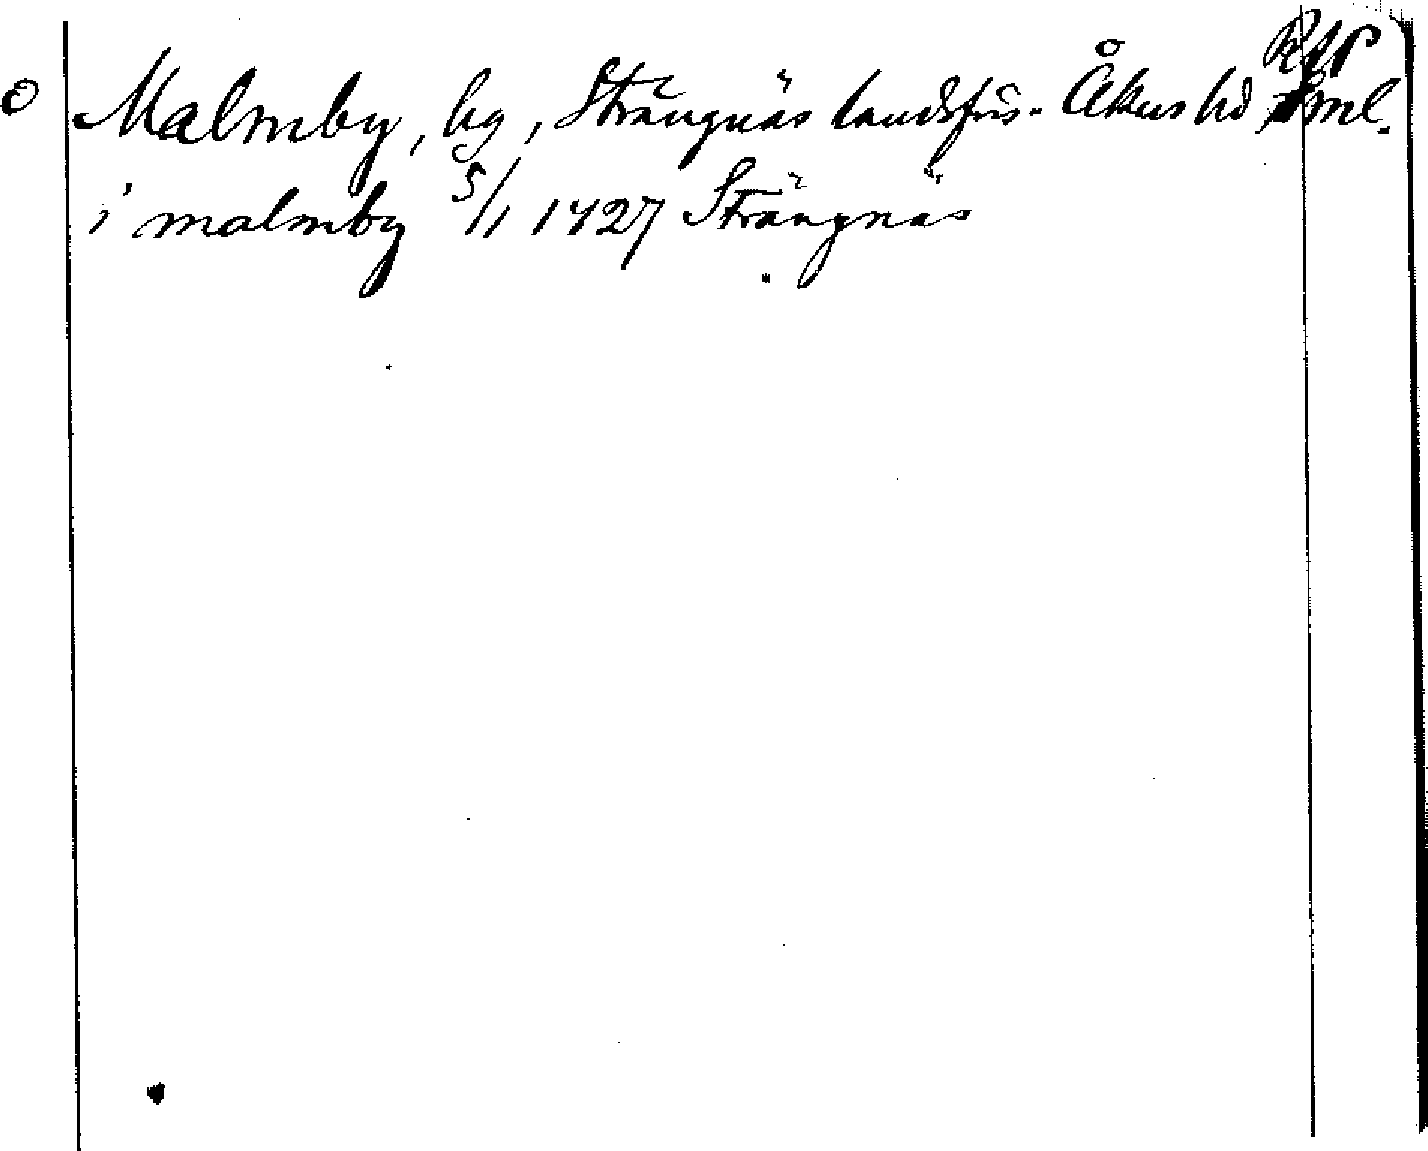 Malmby, by, Strängnäs landsfrs. Åkers hd Sml.
i malmby 5/1 1427 Strängnäs